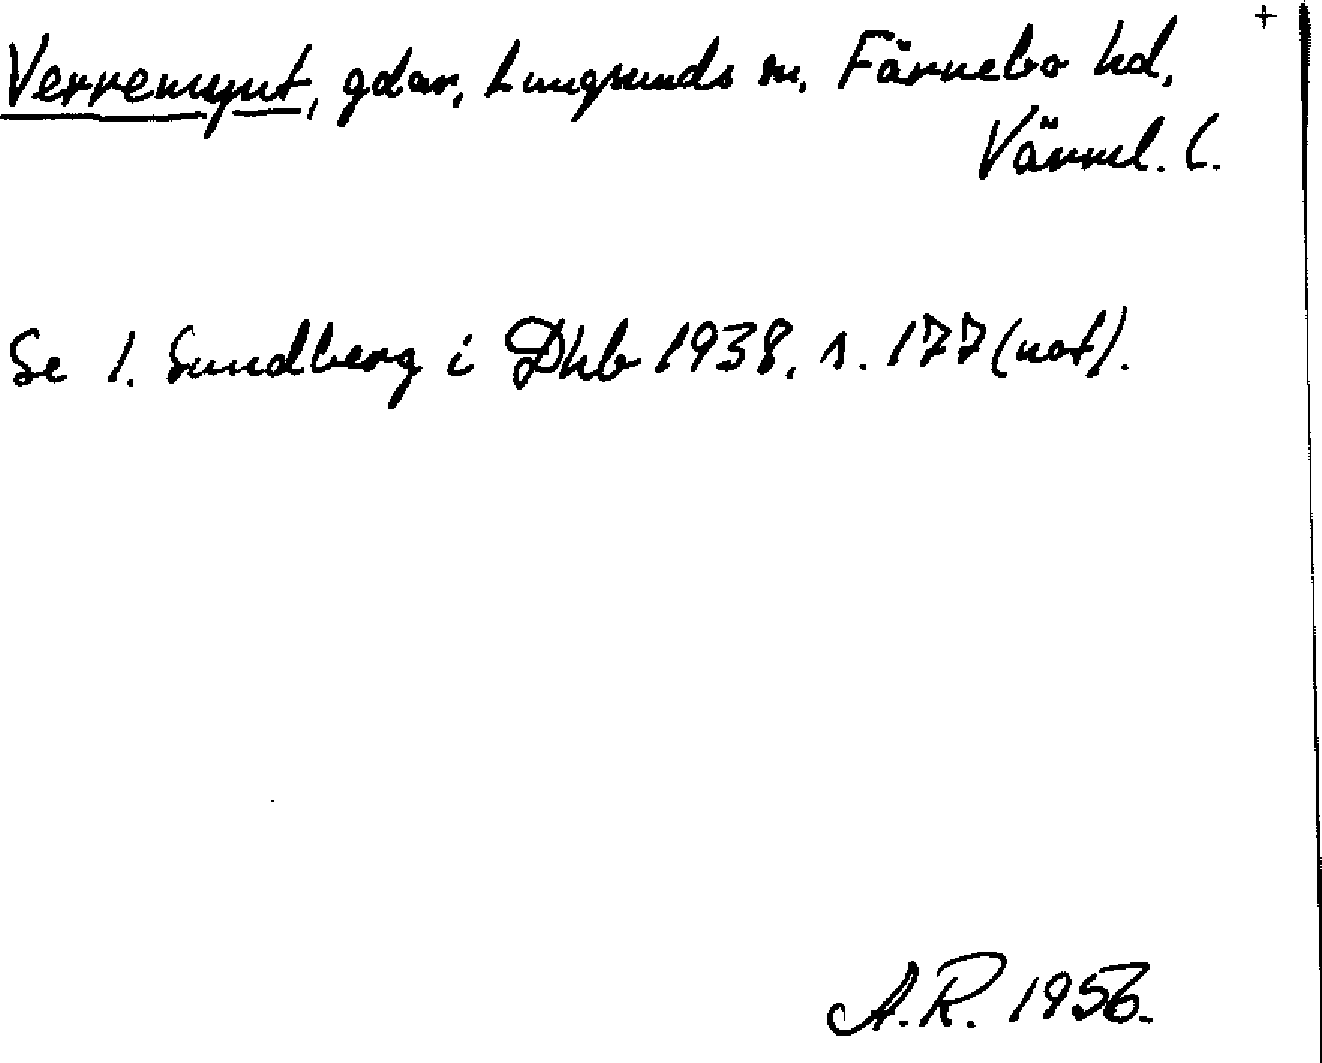 +
Verremynt, gdar, Lungsunds sn, Färnebo hd,
Värml. l.
Se I. Sundberg i Dhb 1938, s. 177 (not).
A.R. 1956.